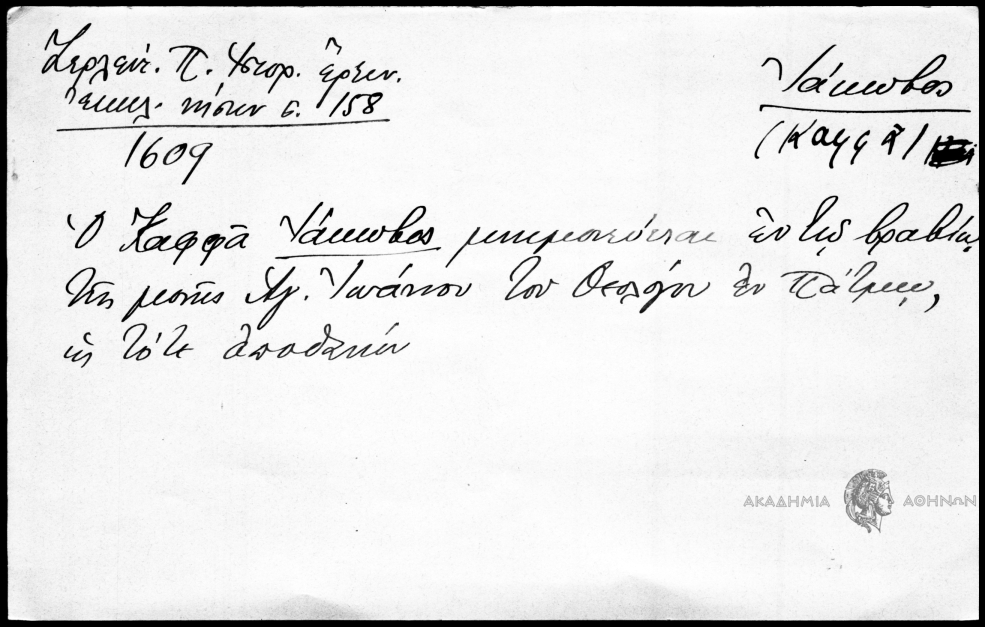 Ζερλέντ. Π. Ἱστορ. ἔρευν.
ἐκκλ. νήσων σ. 158
1609
Ἰάκωβος
(Καφφᾶ)
Ὁ Καφφᾶ Ἰάκωβος μνημονεύεται ἐν τῷ βραβίῳ
τῆς μονῆς Ἁγ. Ἰωάννου τοῦ Θεολόγου ἐν Πάτμῳ,
ὡς τότε ἀποθανών
ΑΚΑΔΗΜΙΑ ΑΘΗΝΩΝ